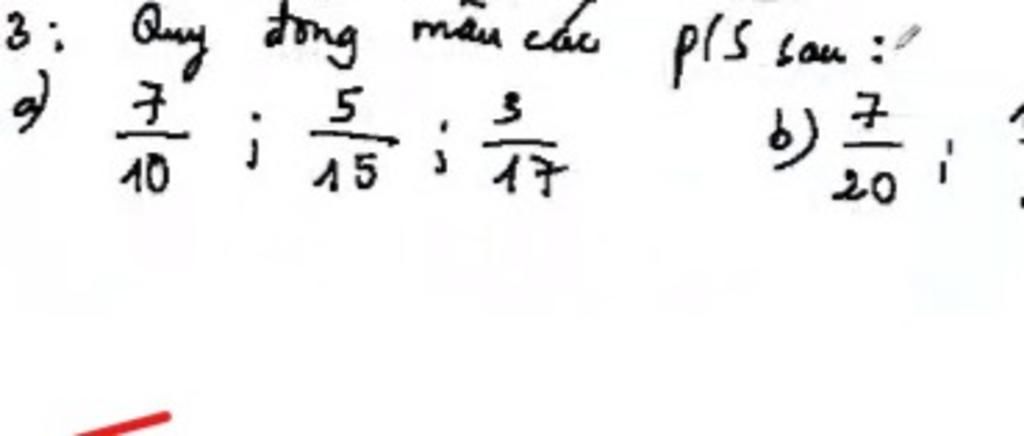 3: Quy đồng mẫu các p/s sau:
a) 7/10 ; 5/15 ; 3/17 b) 7/20 ;